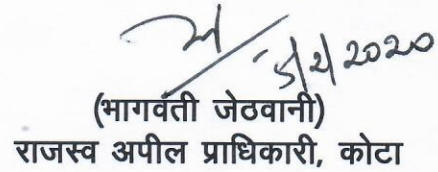 5/2/2020
(भागवंती जेठवानी)
राजस्व अपील प्राधिकारी, कोटा